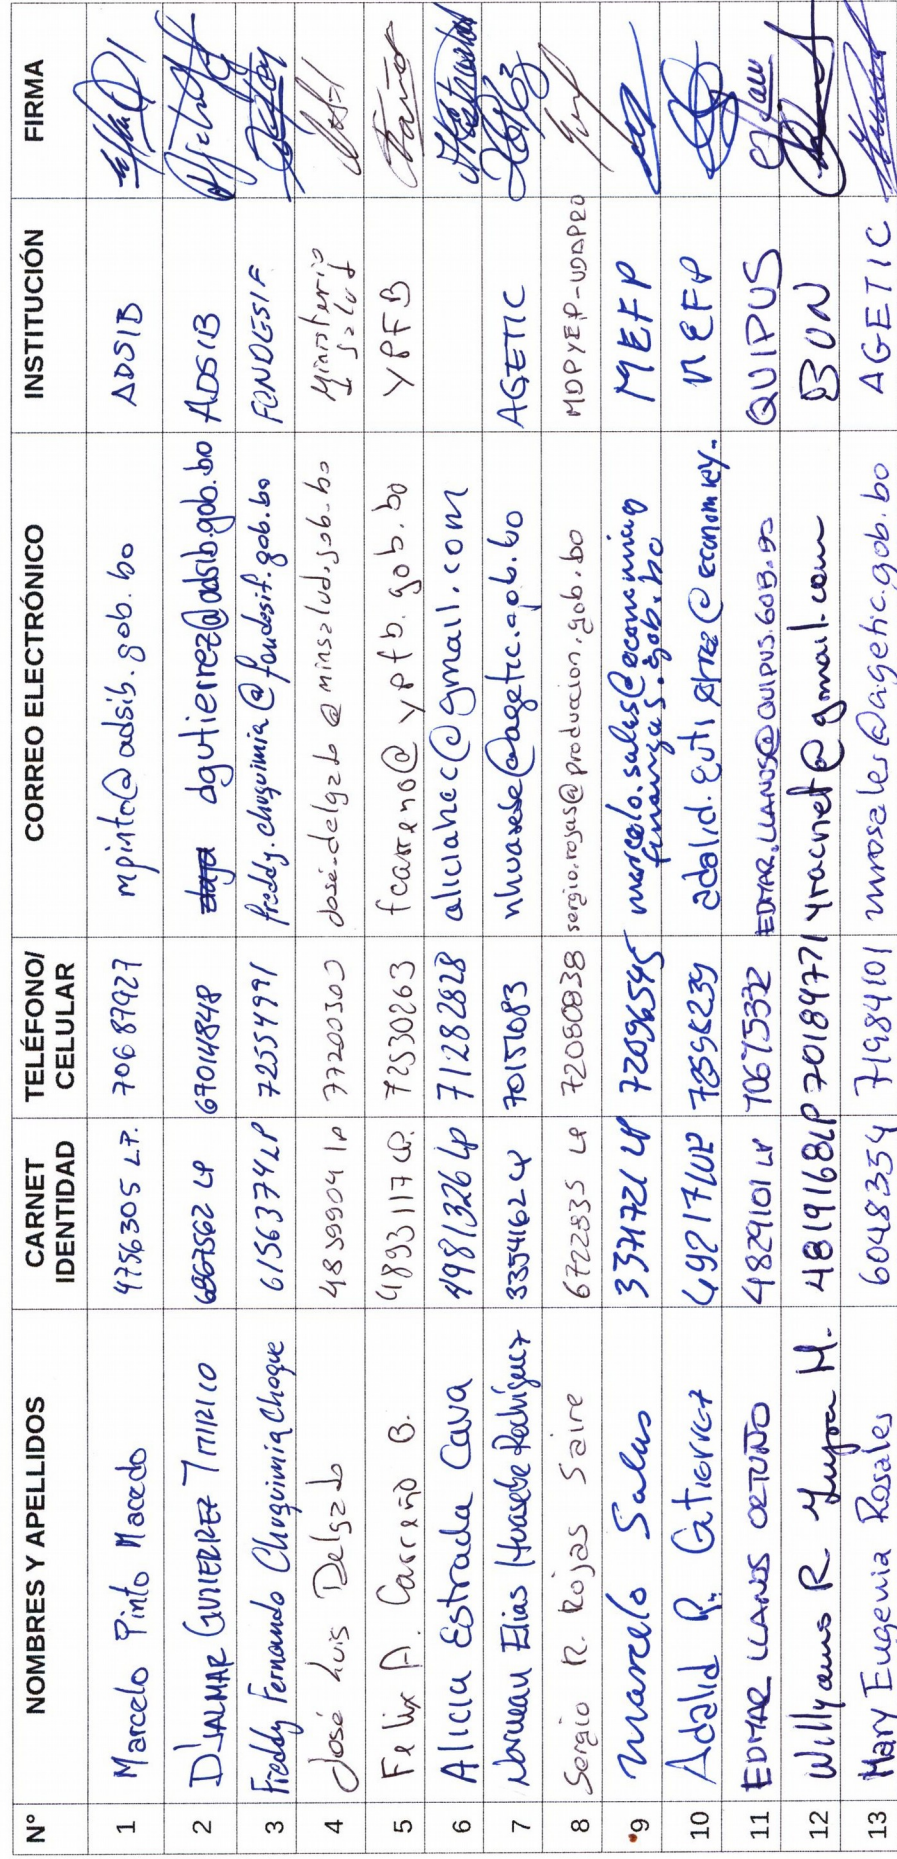 N° NOMBRES Y APELLIDOS CARNET IDENTIDAD TELÉFONO/ CELULAR CORREO ELECTRÓNICO INSTITUCIÓN FIRMA
1 Marcelo Pinto Macedo 4756305 LP. 70687927 mpinto@adsib.gob.bo ADSIB
2 D'JALMAR GUTIERREZ 6867562 LP 67014848 dgutierrez@adsib.gob.bo ADSIB
3 Freddy Fernando Chuquimia Choque 6156374 LP 72554991 freddy.chuquimia@fondesif.gob.bo FONDESIF
4 José Luis Delgado 4839904 LP 77200300 jose.delgado@minsalud.gob.bo Ministerio Salud
5 Felix A. Carreño B. 4893117 LP. 72530263 fcarreno@ypfb.gob.bo YPFB
6 Alicia Estrada Cava 4981326 LP 71282828 aliciahec@gmail.com
7 Elias Rodríguez 3354162 LP 70151083 AGETIC
8 Sergio R. Rojas Saire 6722835 LP 72080838 sergio.rojas@produccion.gob.bo MDPYEP-UDAPRO
9 Marcelo Salus 3371721 LP 72096545 marcelo.salus@economiay
finanzas.gob.bo MEFP
10 Adalid R. Gutierrez MEFP
11 EDMAR LLANOS ORTUÑO 4829101 LP 70675332 EDMAR.LLANOS@QUIPUS.GOB.BO QUIPUS
12 Willyams R M. 4819168 LP 70189771 yracnet@gmail.com BUN
13 Mary Eugenia Rosales 6048354 71984101 mrosales@agetic.gob.bo AGETIC